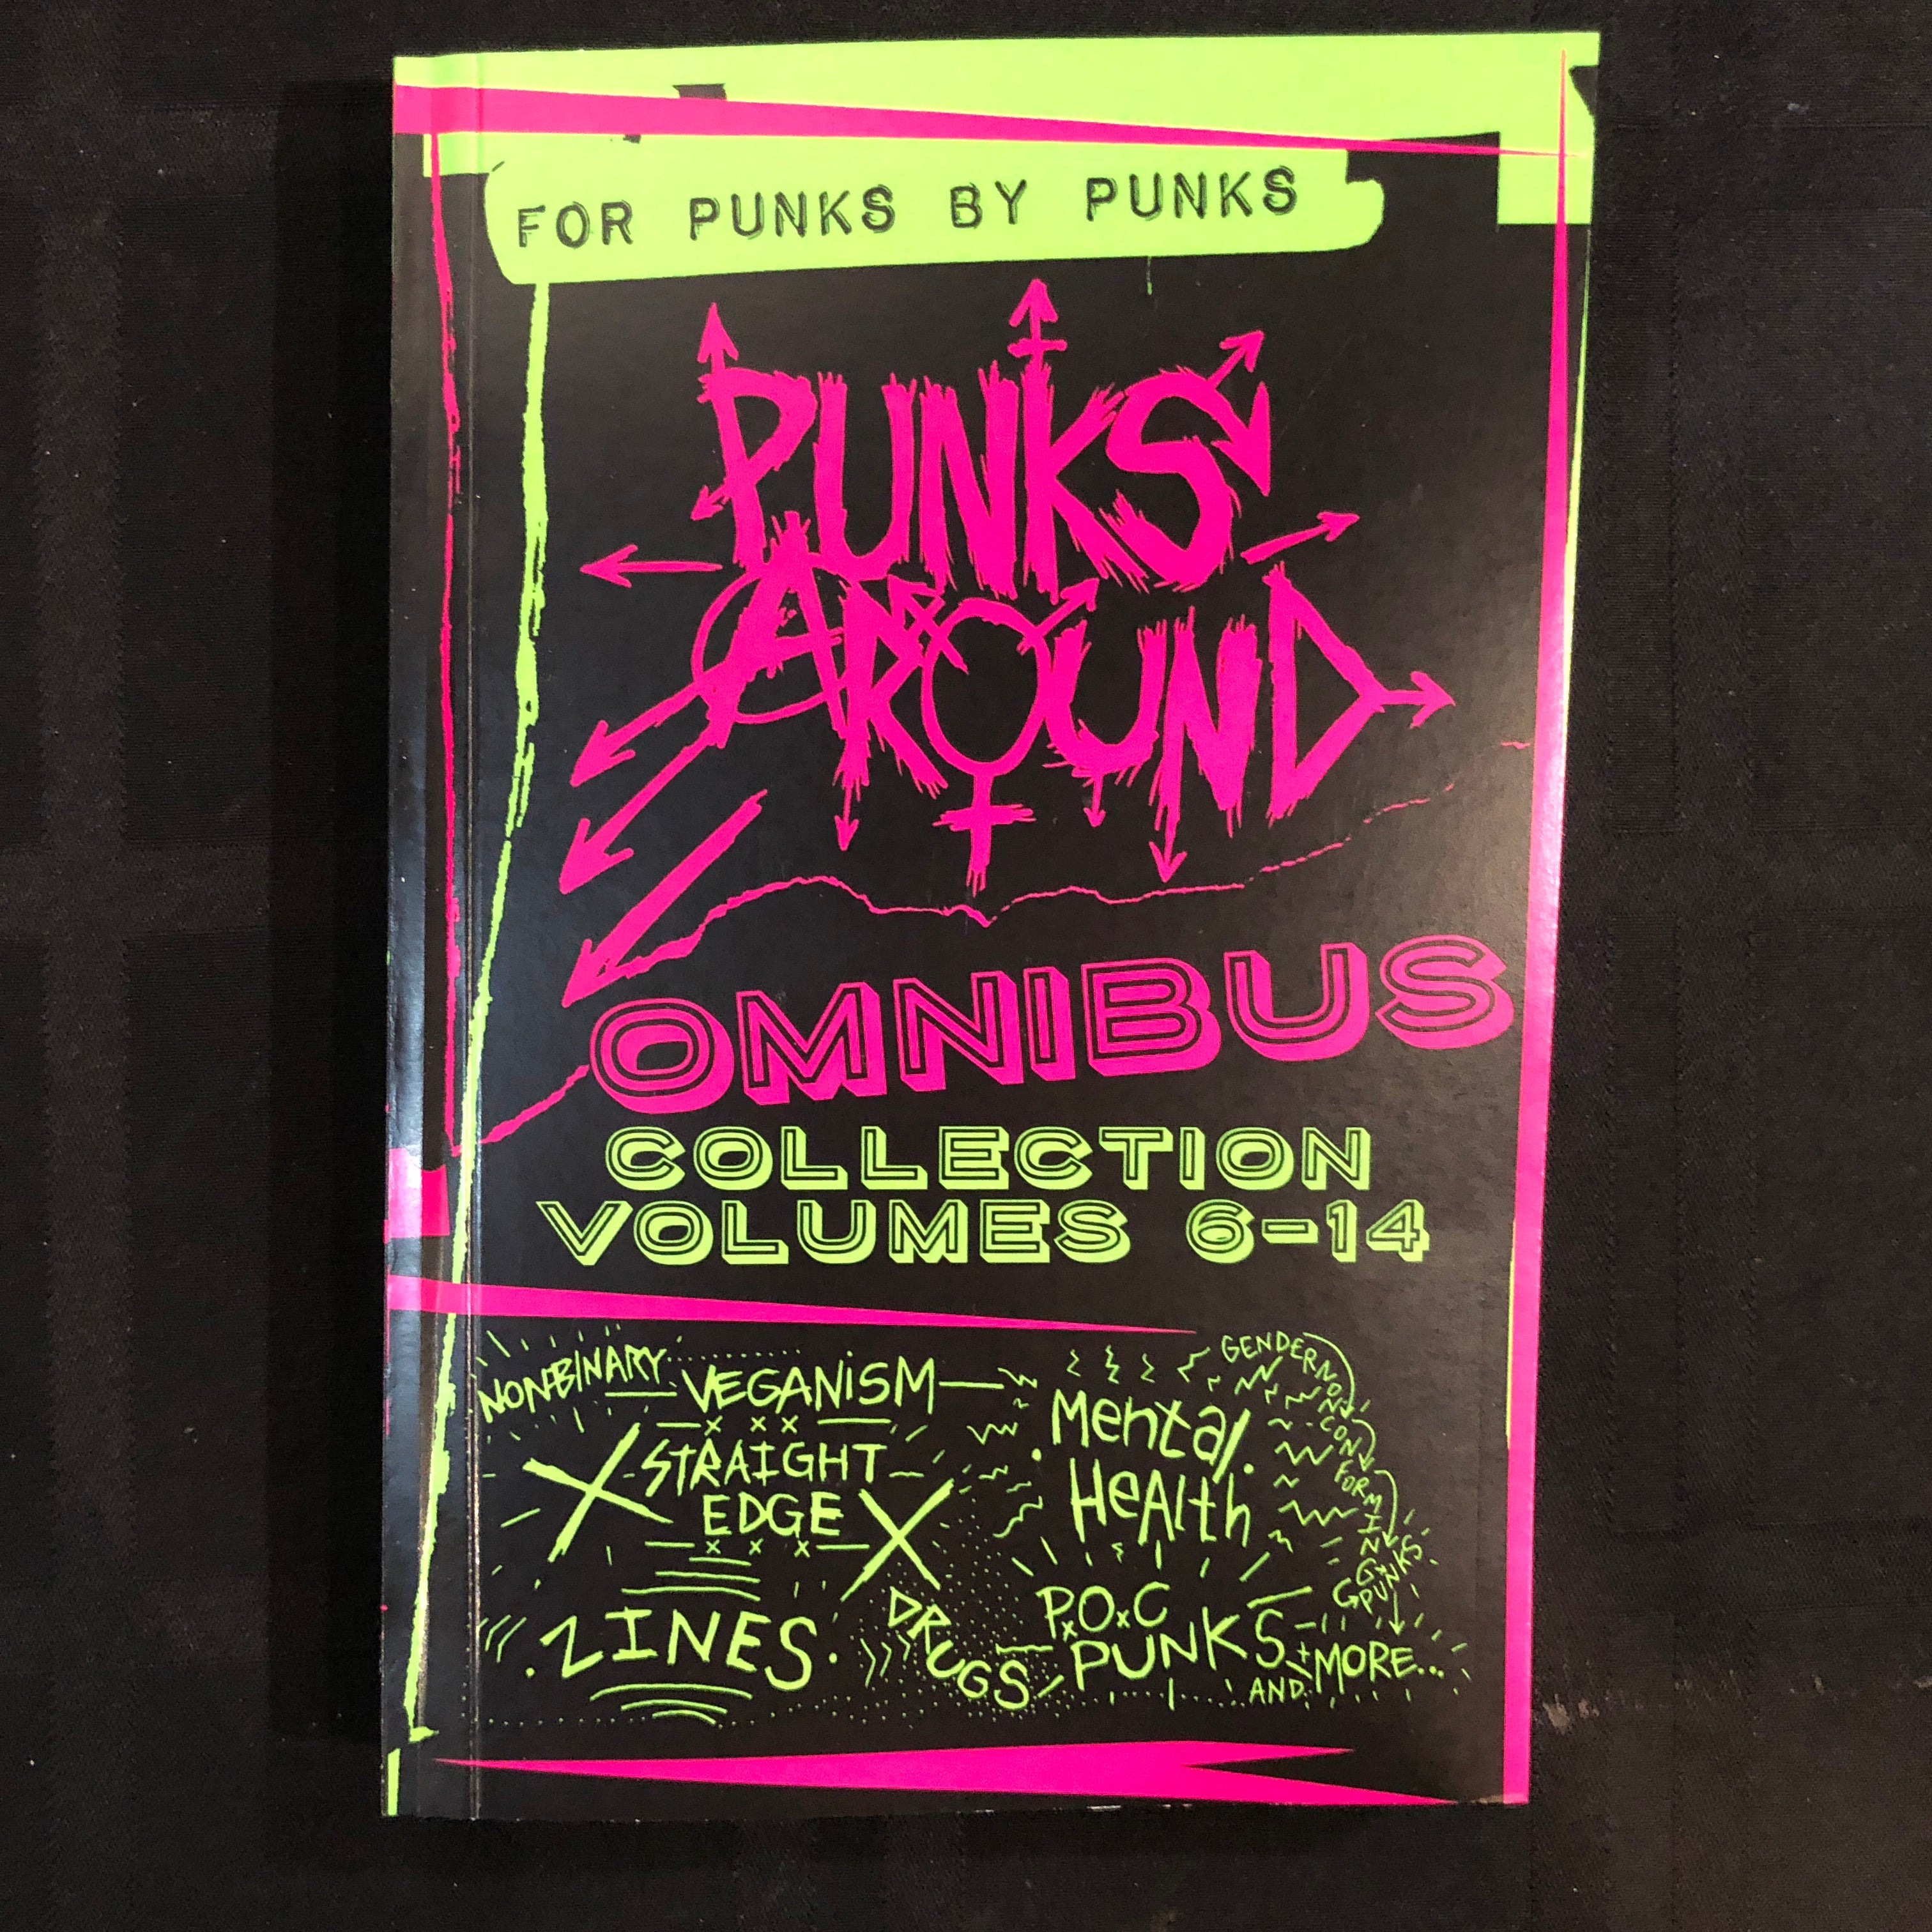 FOR PUNKS BY PUNKS
PUNKS
AROUND
OMNIBUS
COLLECTION
VOLUMES 6-14
NONBINARY
VEGANISM
X STRAIGHT
EDGE X
ZINES
DRUGS
Mental
HeAlth
GENDER NON CON FORMING PUNKS
P.O.C
PUNKS
AND MORE...